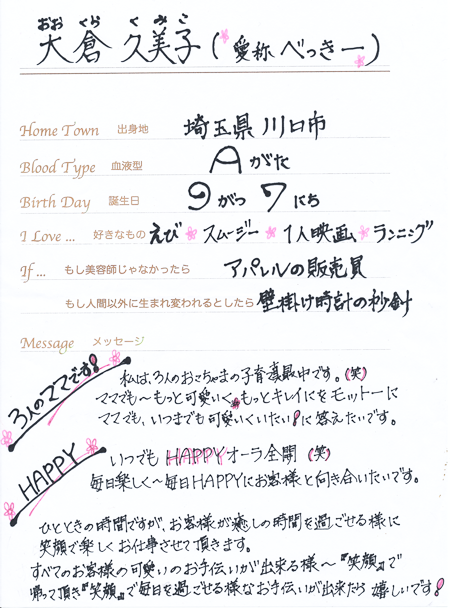 おおくら くみこ
大倉 久美子(愛称 べっきー)
Home Town 出身地 埼玉県 川口市
Blood Type 血液型 Aがた
Birth Day 誕生日 9がつ 7にち
I Love ... 好きなもの えび スムージー 1人映画 ランニング
If ... もし美容師じゃなかったら アパレルの販売員
もし人間以外に生まれ変われるとしたら 壁掛け時計の秒針
Message メッセージ
3人のママです!
私は、3人のおこちゃまの子育真最中です。(笑)
ママでも〜もっと可愛いく。もっとキレイにをモットーに
ママでも、いつまでも可愛いくいたい!に答えたいです。
HAPPY
いつでも HAPPYオーラ全開 (笑)
毎日楽しく〜毎日HAPPYにお客様と向き合いたいです。
ひとときの時間ですが、お客様が癒しの時間を過ごせる様に
笑顔で楽しくお仕事させて頂きます。
すべてのお客様の可愛いのお手伝いが出来る様〜『笑顔』で
帰って頂き『笑顔』で毎日を過ごせる様なお手伝いが出来たら 嬉しいです!